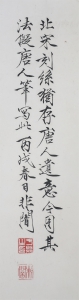 北宋刻絲猶存唐人遺意今用其
法儗唐人筆寫此丙戌春日非闇